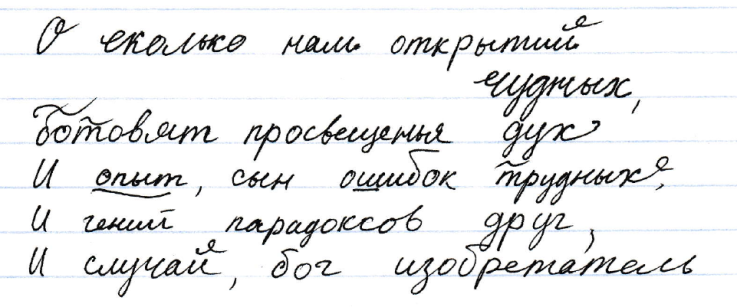 О сколько нам открытий
чудных,
Готовят просвещенья дух
И опыт, сын ошибок трудных,
И гений парадоксов друг,
И случай, бог изобретатель